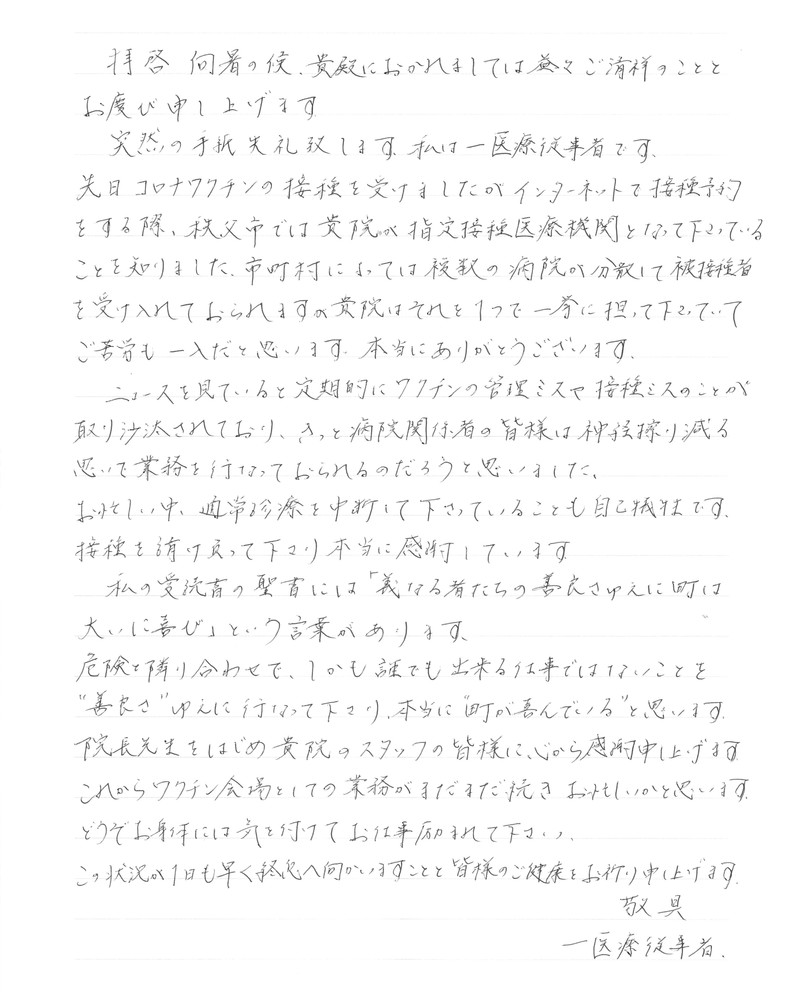 拝啓 向暑の候、貴殿におかれましては益々ご清祥のことと
お慶び申し上げます
突然の手紙失礼致します。私は一医療従事者です。
先日コロナワクチンの接種を受けましたがインターネットで接種予約
をする際、秩父市では貴院が指定接種医療機関となって下さっている
ことを知りました。市町村によっては複数の病院が分散して被接種者
を受け入れておられますが貴院はそれを1つで一挙に担って下さっていて
ご苦労も一入だと思います。本当にありがとうございます。
ニュースを見ていると定期的にワクチンの管理ミスや接種ミスのことが
取り沙汰されており、きっと病院関係者の皆様は神経擦り減る
思いで業務を行なっておられるのだろうと思いました。
お忙しい中、通常診療を中断して下さっていることも自己犠牲です。
接種を請け負って下さり本当に感謝しています
私の愛読書の聖書には「義なる者たちの善良さゆえに町は
大いに喜び」という言葉があります。
危険と隣り合わせで、しかも誰でも出来る仕事ではないことを
"善良さ"ゆえに行なって下さり、本当に"町が喜んでいる"と思います。
院長先生をはじめ貴院のスタッフの皆様に、心から感謝申し上げます
これからワクチン会場としての業務がまだまだ続きお忙しいかと思います。
どうぞお身体には気を付けてお仕事励まれて下さい。
この状況が1日も早く終息へ向かいますことと皆様のご健康をお祈り申し上げます。
敬具
一医療従事者.